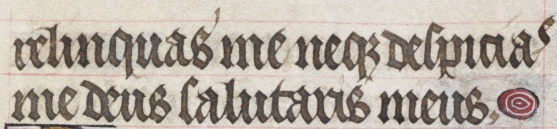 relinquas me neqꝫ despicias
me deus salutaris meus.